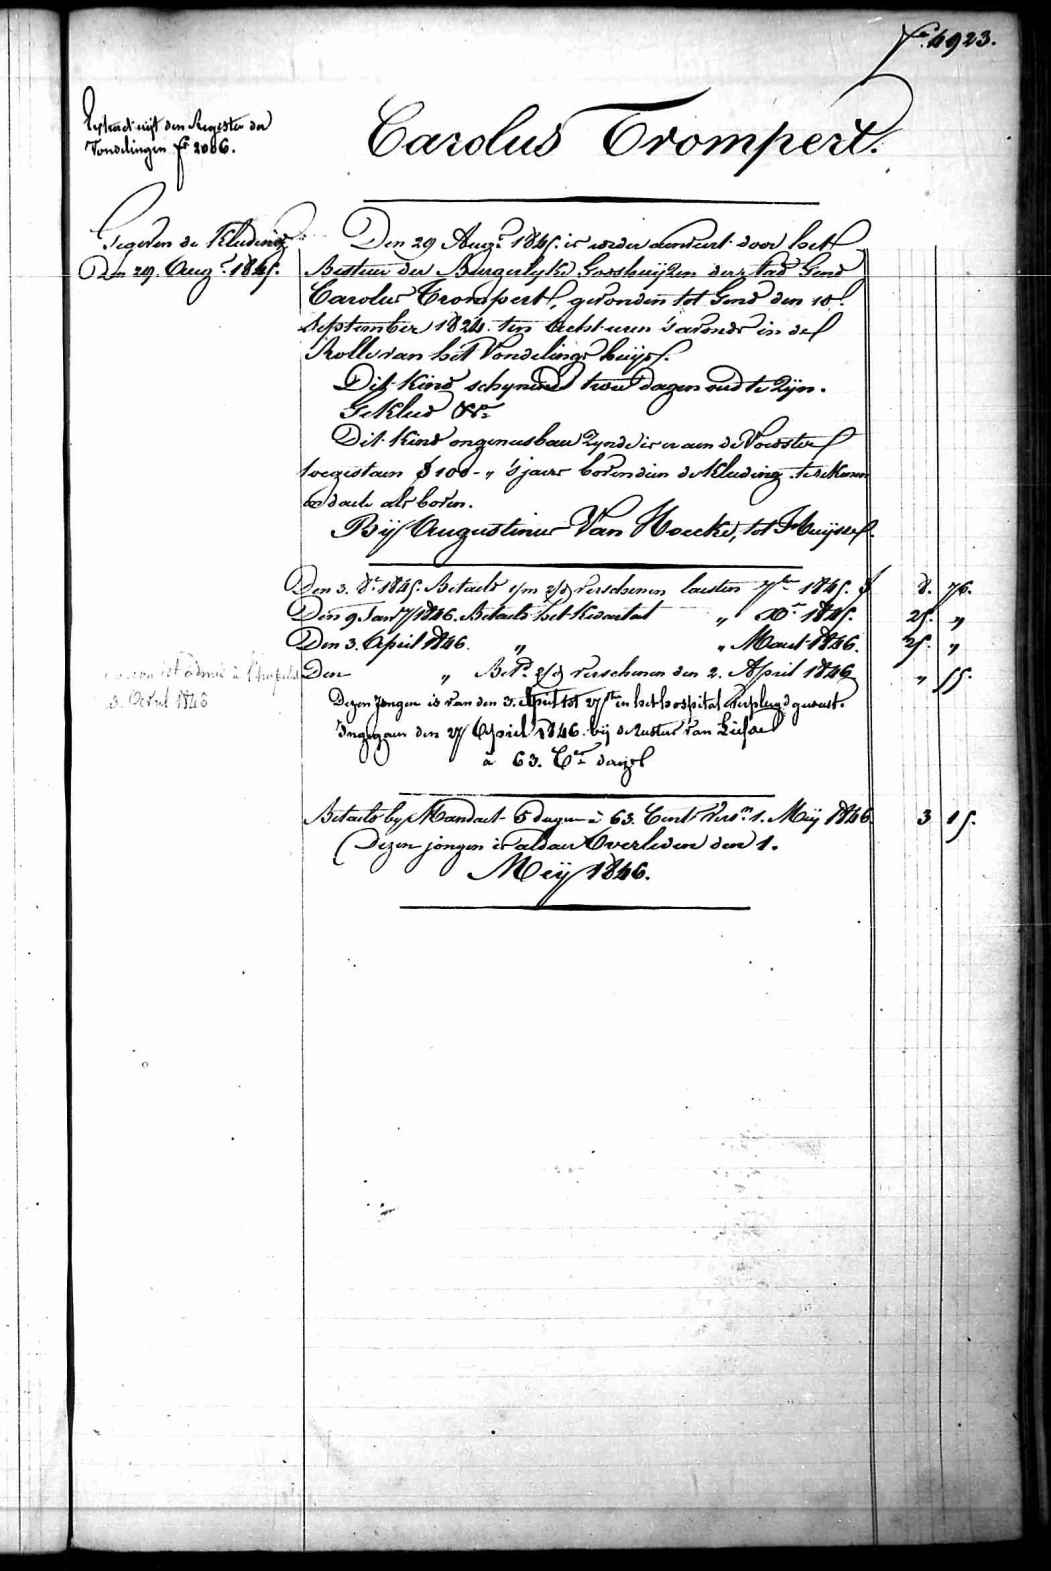 f.º 4923.
Carolus Trompert.
Extract uijt den Register der
Vondelingen f.º 2006.
Gegeven de Kleeding
Den 29. Aug.t 1845.
Den 29 Aug.t 1845. is weder aenveert door het
Bestuer der Burgerlyke Godshuijzen der stad Gend
Carolus Trompert, gevonden tot Gend den 10.
September 1824. ten Acht uren 's avonds in de
Rolle van het Vondelings huijs.
Dit Kind schynende twee dagen oud te Zijn.
Gekleed &a.
Dit Kind ongeneesbaer Zynde is er aen de Voedster
toegestaen f 100 - „ 's jaers boven dien de Kleeding te rekenen
on daete als boven.
Bij Augustinus Van Hoecke, tot Huijsse.
Den 3. 8.r 1845. Betaeld 1/m 2/d verschenen laesten 7.ber 1845. f 8. 76.
Den 9 Janʸ 1846. Betaeld het Kwartael „ X.r 1845. 25. „
Den 3. April 1846. „ „ Maert 1846. 25. „
Den „ Bet.d 2/d verschenen den 2. April 1846 „ 55.
est admis à l'hopital
3. Avril 1846
Dezen Jongen is van den 3. April tot 27.st in het hospitael verpleegd geweest.
Ingegaen den 27 April 1846. bij de Zuster van Liefde
à 63. C.en daegs
Betaeld by Mandaet 5 dagen à 63. Cent Vers.n 1. Meij 1846 3 15.
Dezen jongen is aldaer Overleden den 1.
Meij 1846.